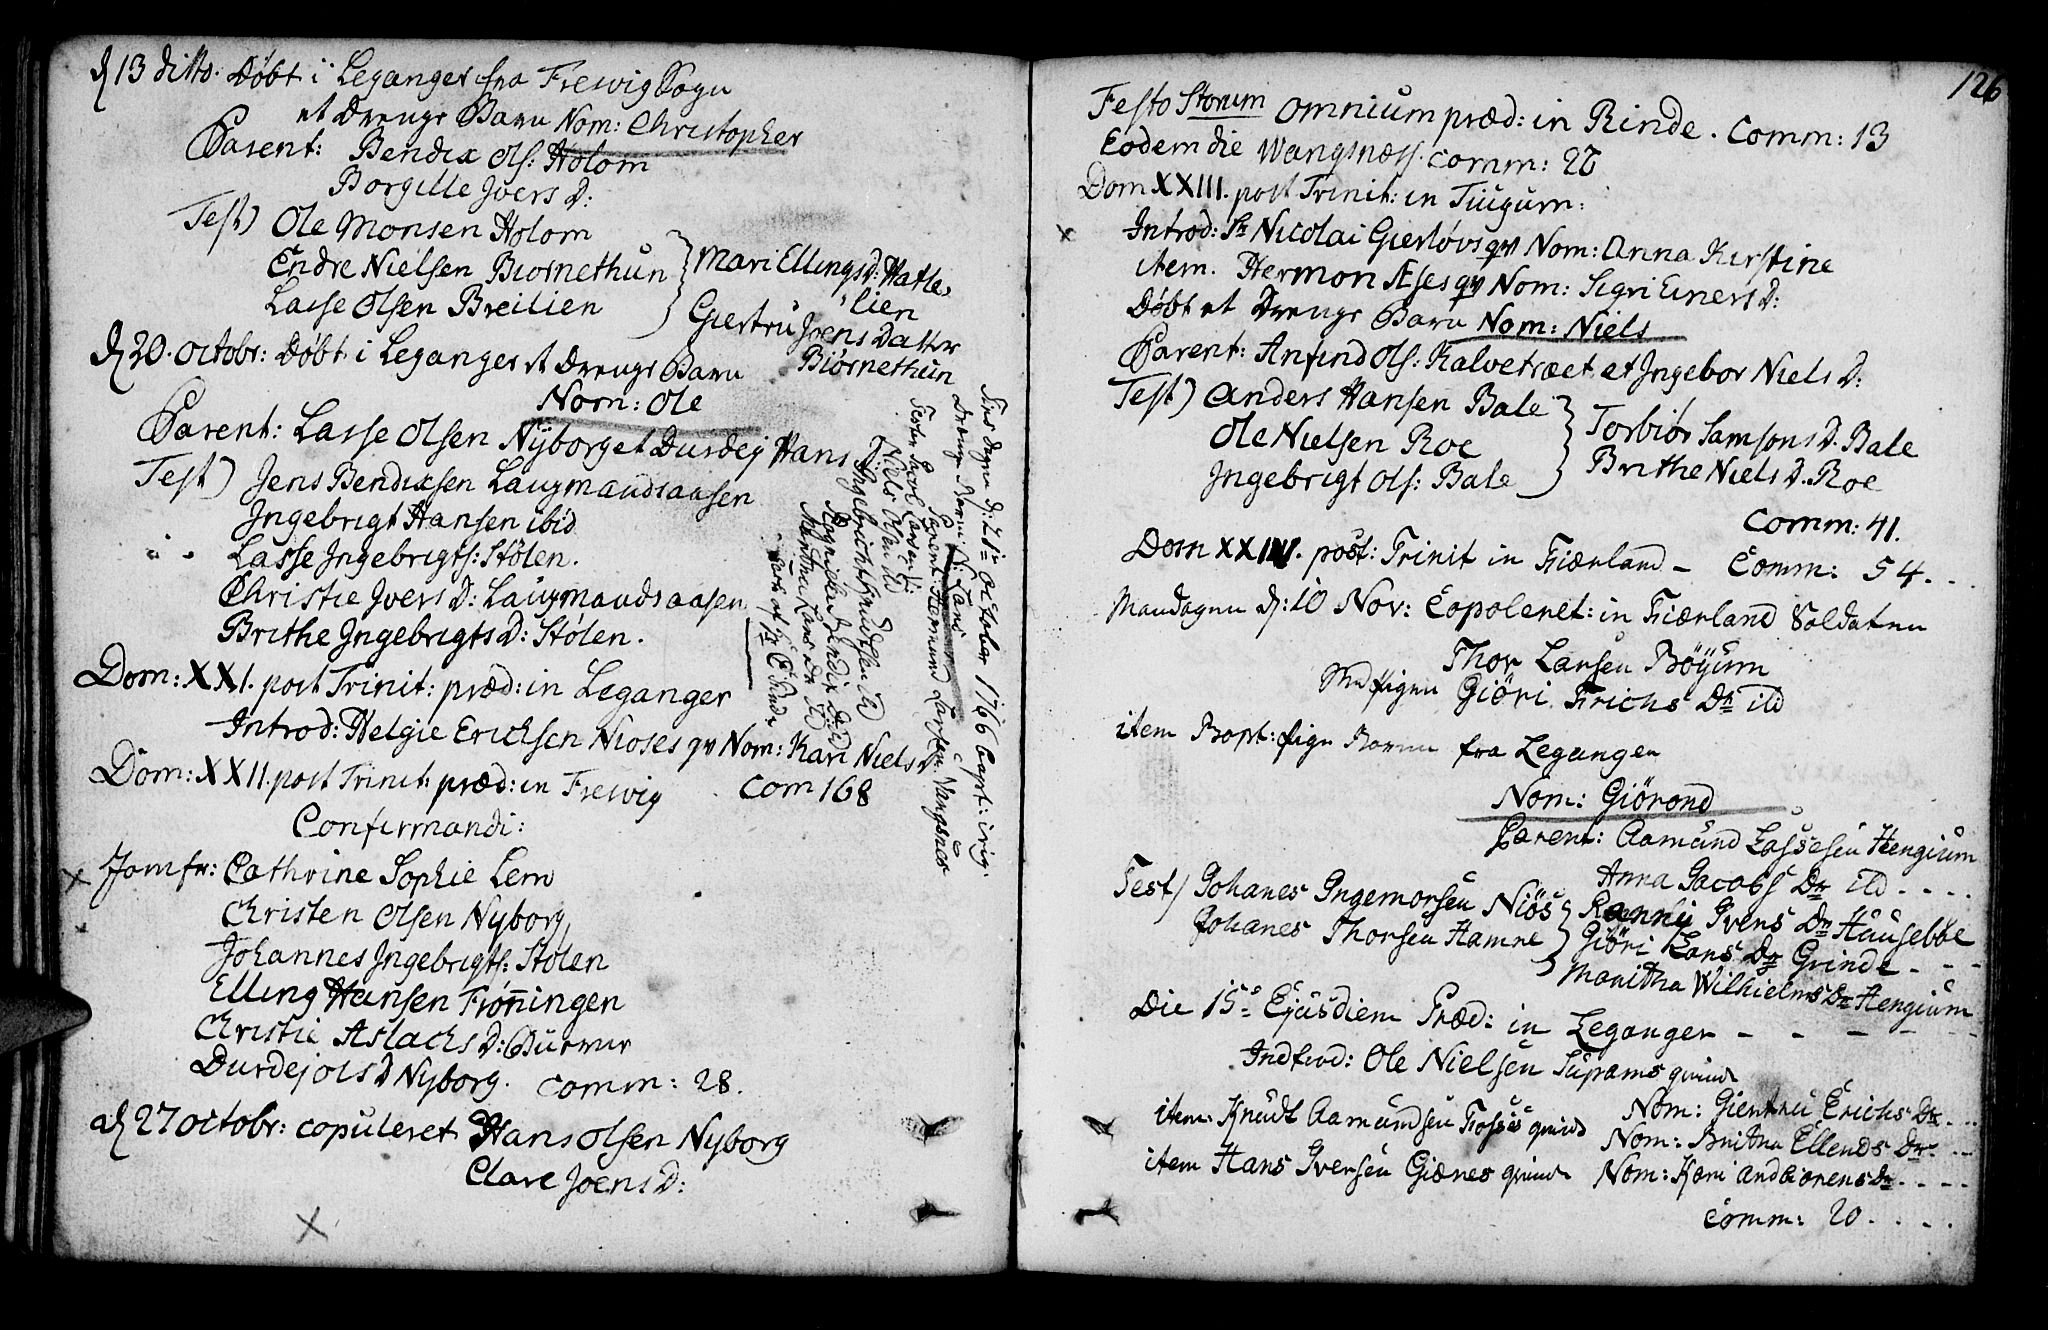 d 13 ditto. Døbt i Leganger fra Frewig Sogn
et Drenge Barn Nom: Christopher
Parent: Bendix Ols: Holom
Borgille Joers D:
Test) Ole Monsen Holom
Endre Nielsen Biornethun
Lasse Olsen Breilien
Mari Ellingsd: Hatle,
lien
Giertru Joens Datter
Biørnethun
d 20. octobr: Døbt i Leganger et Drenge Barn
Nom: Ole
Parent: Lasse Olsen Nyborg et Durdej Hans D:
Test) Jens Bendixsen Laugmandsaasen
Jngebrigt Hansen ibid
Lasse Jngebrigts: Stölen.
Christie Joers D: Laugmandsaasen
Brithe Jngebrigts D: Stólen.
Dom: XXI. post Trinit: præd: in Leganger
Introd: Helgie Ericksen Nioses qv Nom: Kari Niels D
Dom: XXII. post Trinit: præd: in Frewig com 168
Confirmandi:
Jomfr: Cathrine Sophie Lem
Christen Olsen Nyborg,
Johannes Jngebrigts: Stolen
Elling Hansen Frønningen
Christie Aslachs D:
Durdej Ols D Nyborg. comm: 28.
d 27 octobr: copuleret Hans Olsen Nyborg
Clare Joens D:
d: 21 October 1766 bapt:
Drenge Nom: Lars
Parent: Hermund Larsen Vangsnes
Niels Olsen ib
Ingebricht Knudsen ib
Bendix D: ib
Martha Lars Dr ib
126
Festo Storum omnium præd: in Rinde. Comm: 13
Eodem die Wangsness. comm: 26
Dom XXIII. post Trinit: in Tiugum:
Introd: Sr Nicolai Gierløvs qv Nom: Anna Kirstine
item. Hermon Æses qv Nom: Sigri Einers D:
Døbt et Drenge Barn Nom: Niels
Parent: Anfind Ols: Kalvetræet et Jngebor Niels D:
Test) Anders Hansen Bale
Ole Nielsen Roe
Jngebrigt Ols: Bale
Torbiør Samsons D. Bale
Brithe Niels D. Roe
Comm: 41.
Dom XXIV. post: Trinit in Fiærland - Comm: 54...
Mandagen d: 10 Nov: Copoleret: in Fiærland Soldaten
Thor Larsen Böyum
Med Pigen Giöri Erichs Dr ibd
item Bapt: Pige Barn fra Leganger
Nom: Giörond
Parent: Aamund Lassesen Hengium
Anna Jacobs Dr ibd....
Test/ Johanes Ingemorsen Niös
Johanes Thorsen Hamre
Ranni Ivers Dr Hausebøe
Giöri Lars Dr Grinde - - -
Maritha Wilhielms Dr Hengium
Die 15o Ejusdiem Præd: in Leganger - - - - - -
Indtrod: Ole Nielsen Suprams qvinde
Nom: Giertru Erichs Dr...
item. Knudt Aamundsen Fosses qvinde Nom: Britha Ellends Dr...
item Hans Iversen Giærnes qvinde Nom: Kari Andbiorens Dr....
Comm: 20....